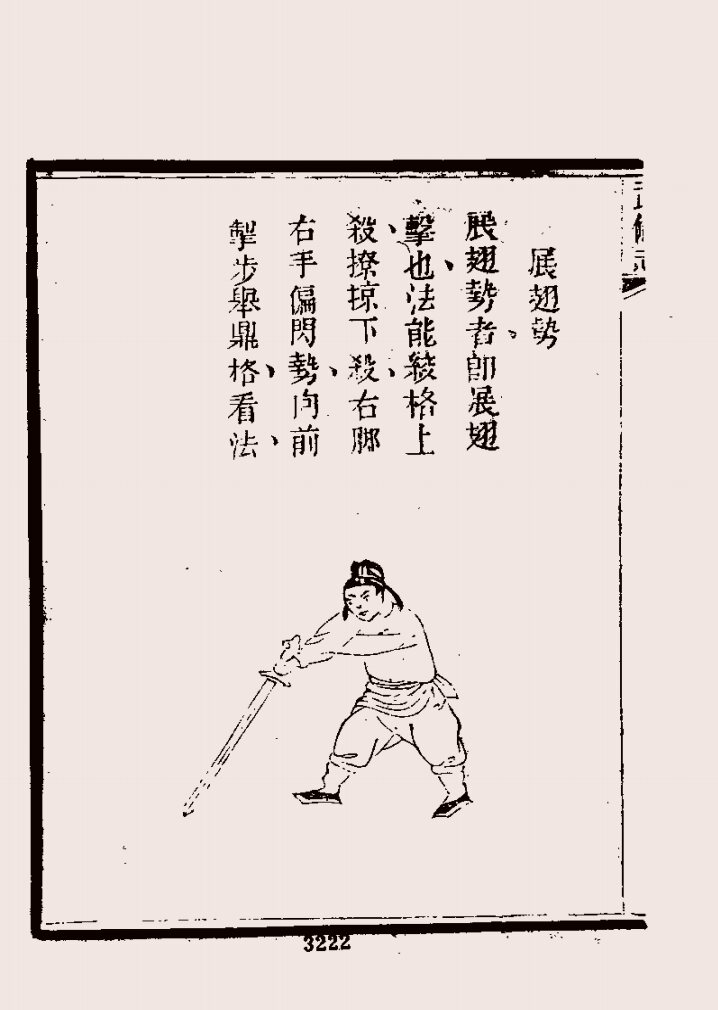 武備志
展翅勢
展翅勢者即展翅
擊也法能絞格上
殺撩掠下殺右脚
右手偏閃勢向前
掣步舉鼎格看法
3222